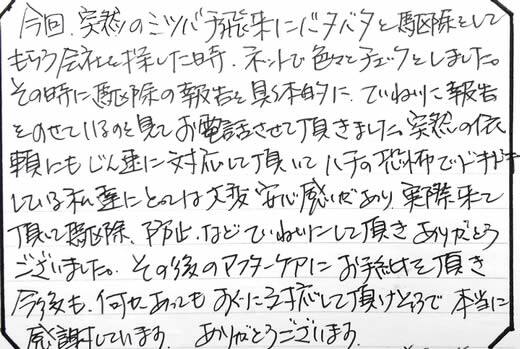 今回、突然のミツバチ飛来にバタバタと駆除をして
もらう会社を探した時、ネットで色々とチェックをしました。
その時に駆除の報告を具体的に、ていねいに報告
をのせているのを見てお電話させて頂きました。突然の依
頼にもじん速に対応して頂いてハチの恐怖でドキドキ
している私達にとっては大変安心感いだあり、実際来て
頂いて駆除、防止、などていねいにして頂きありがとう
ございました。その後のアフターケアにお手紙を頂き
今後も、何かあってもすぐに対応して頂けそうで本当に
感謝しています。ありがとうございます。